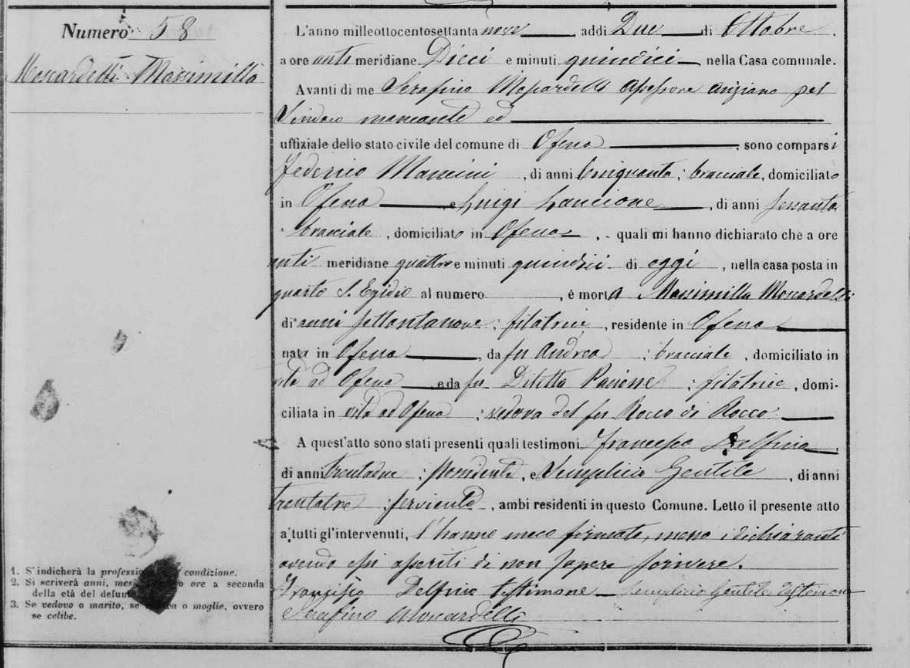 Numero 58
Moscardelli Massimilla
L'anno milleottocentosettanta nove, addi Due di Ottobre,
a ore anti meridiane Dieci e minuti quindici, nella Casa comunale.
Avanti di me Serafino Moscardelli Assessore anziano pel
Sindaco mancante ed
uffiziale dello stato civile del comune di Ofena, sono comparsi
Federico Mancini, di anni cinquanta; bracciale, domiciliato
in Ofena e Luigi Lancione, di anni sessanta
bracciale, domiciliato in Ofena, quali mi hanno dichiarato che a ore
anti meridiane quattro e minuti quindici di oggi, nella casa posta in
quarto S. Egidio al numero , è morta Massimilla Moscardelli
di anni settantanove; filatrice, residente in Ofena
nata in Ofena, da fu Andrea; bracciale, domiciliato in
vita ad Ofena e da fu Diletta ; filatrice, domi-
ciliata in vita ad Ofena; vedova del fu Rocco di Rocco
A quest'atto sono stati presenti quali testimoni Francesco Delfino
di anni ; , Semplicio Gentile, di anni
trentatre; serviente, ambi residenti in questo Comune. Letto il presente atto
a tutti gl'intervenuti, l'hanno meco firmato, meno i dichiaranti
avendo essi asseriti di non sapere scrivere.
Francesco Delfino testimone Semplicio Gentile Testimone
Serafino Moscardelli
1. S'indicherà la professione condizione.
2. Si scriverà anni, mesi o ore a seconda
della età del defunto
3. Se vedovo o marito, se o moglie, ovvero
se celibe.